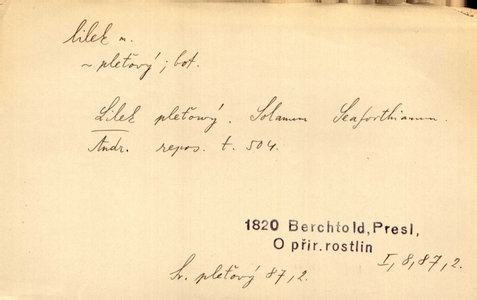 lilek m.
~ pleťový; bot.
Lilek pleťowý. Solanum Seaforthianum.
Andr. repos. t. 504.
1820 Berchtold, Presl,
O přir. rostlin
I, 8, 87, 2.
Sv. pleťový 87, 2.